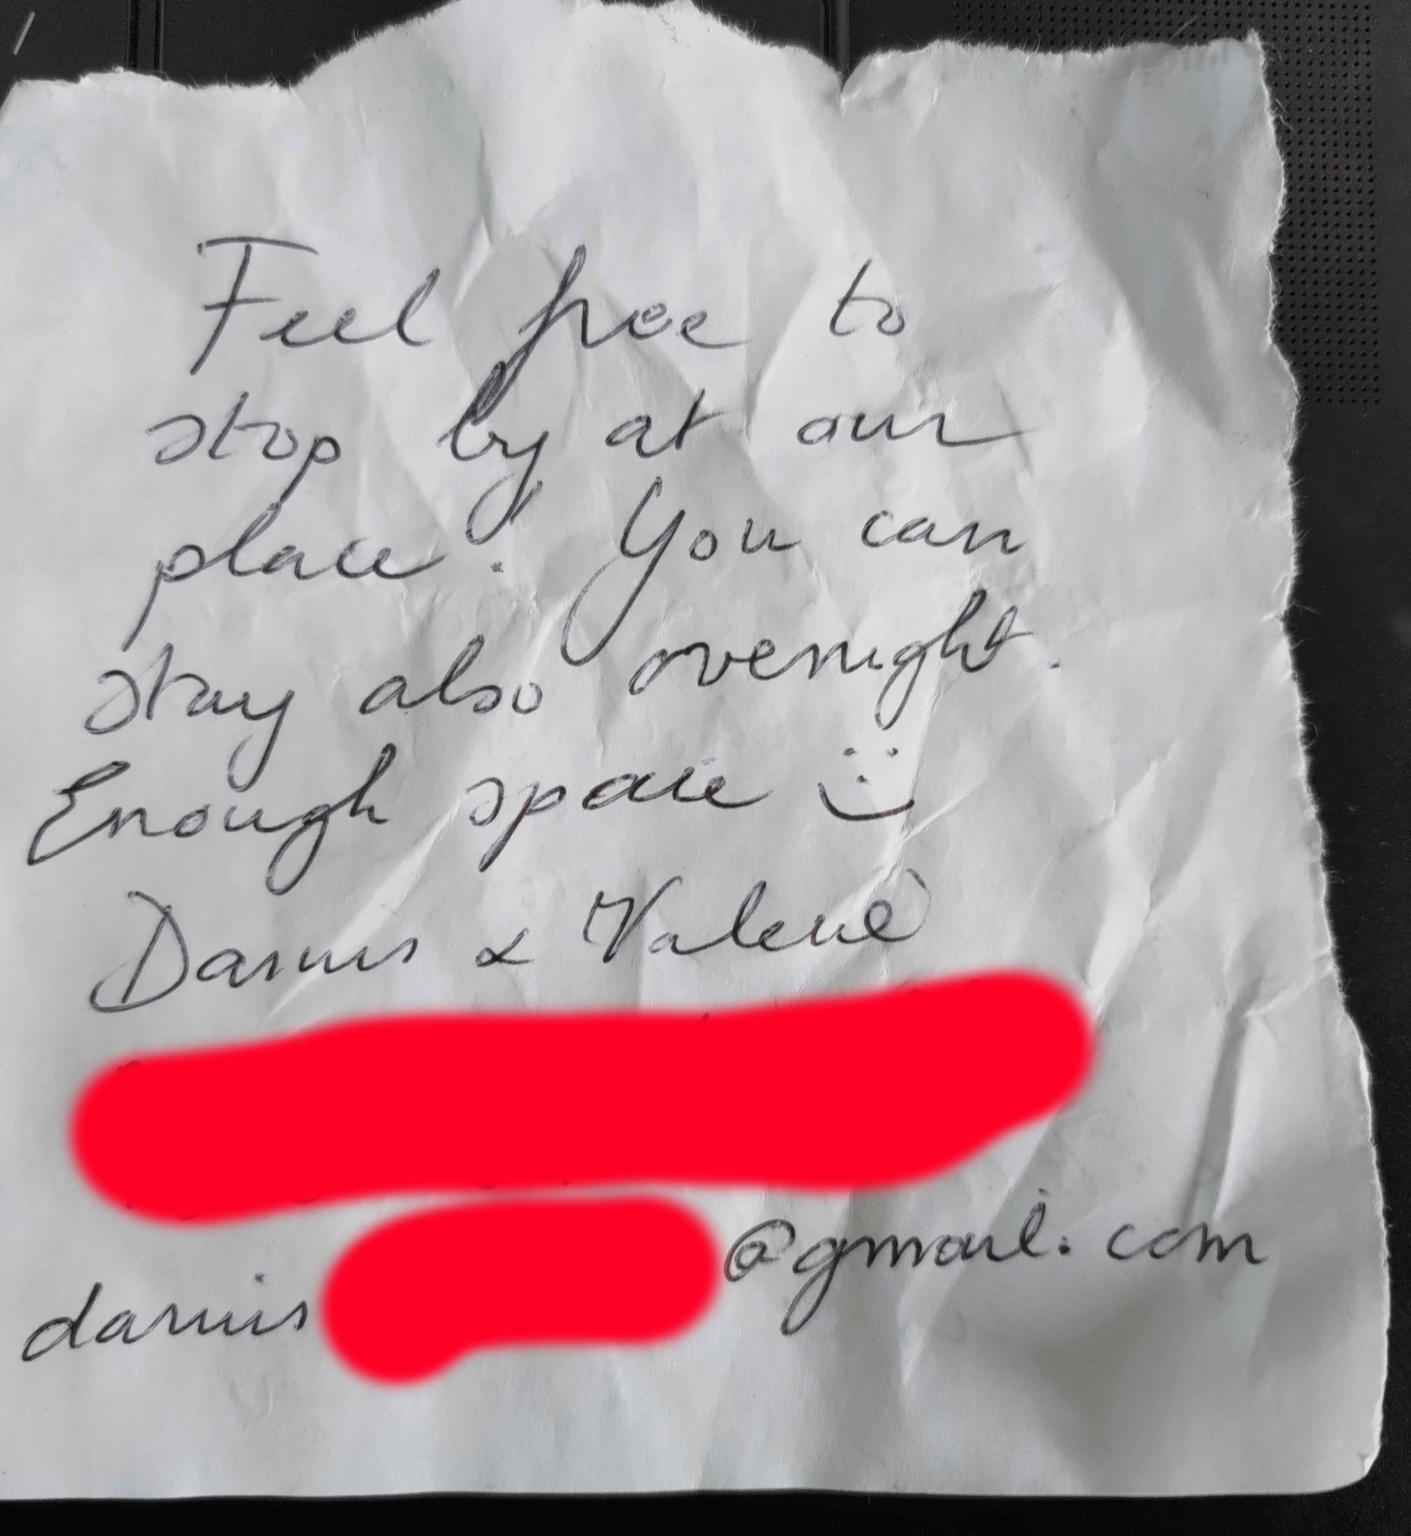 Feel free to
stop by at our
place! You can
stay also overnight.
Enough space :)
Darius & Valerie
@gmail.com
darius